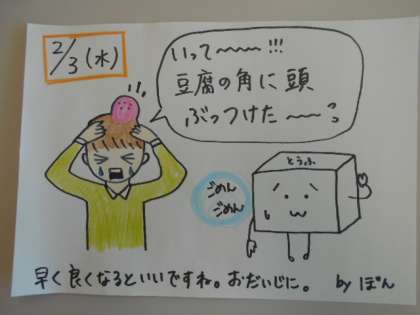 2/3(水)
いって〜〜〜!!!
豆腐の角に頭
ぶっつけた〜〜〜
とうふ
ごめん
ごめん
早く良くなるといいですね。おだいじに。 by ぽん